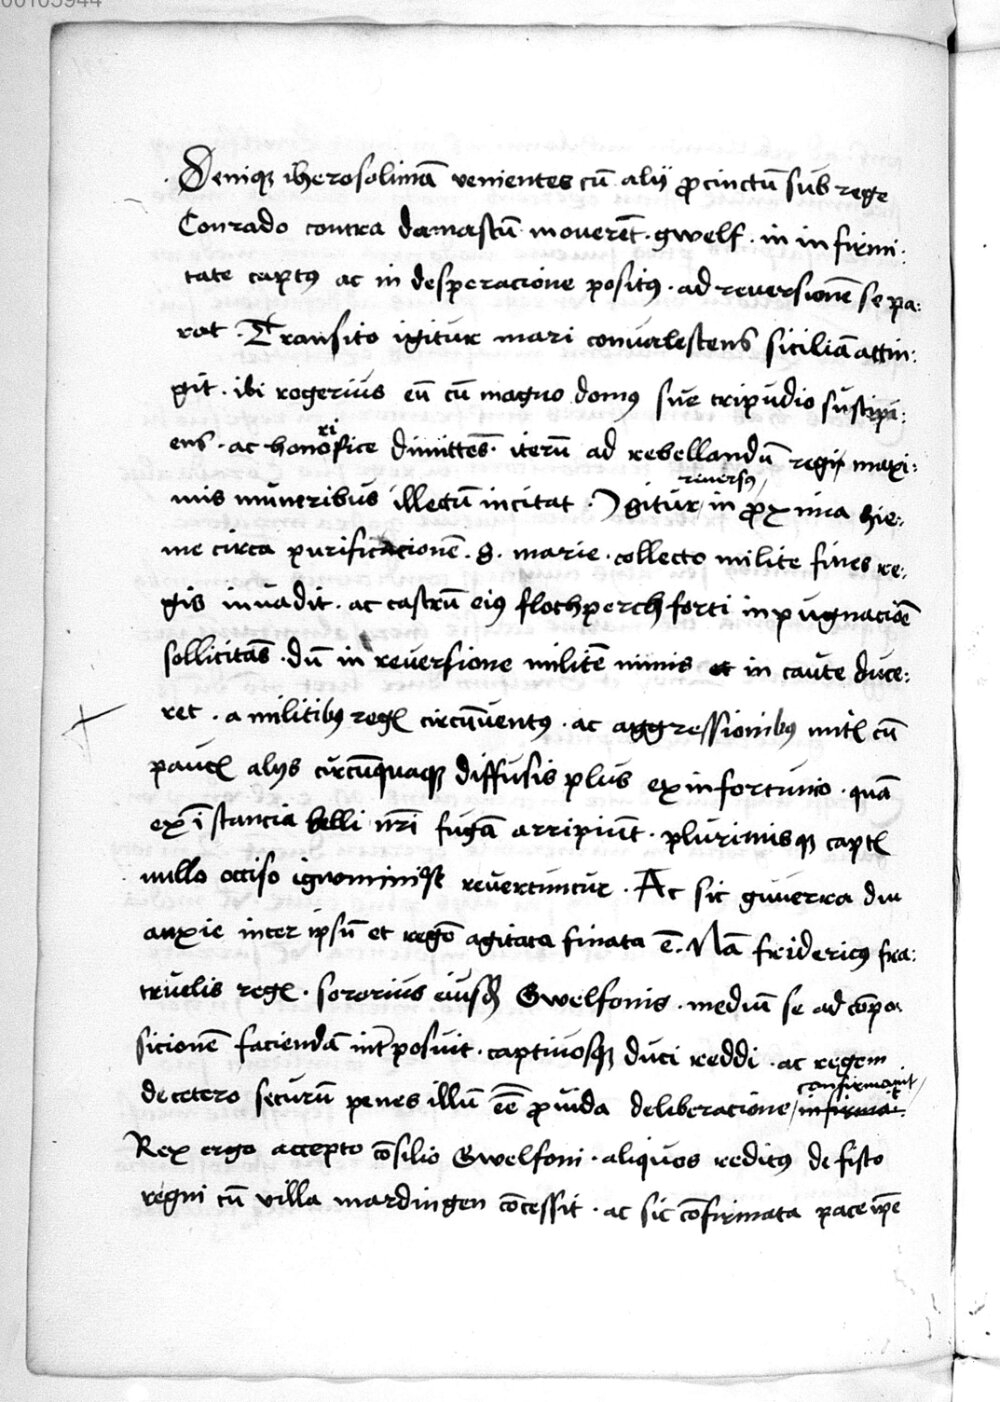 00105944
Deniqꝫ iherosolimā venientes cū alij ꝓcinctū sub rege
Conrado contra damascū moverēt · gwelf · in infirmi:
tate captꝰ ac in desperacione positꝰ · ad reversionē se pa:
rat · Transito igitur mari convalescens siciliā attin:
git · ibi rogerius eū cū magno domꝰ sue tripudio suscipi:
ens · ac honorifice dimittēs · iterū ad rebellandū regi maxi:
mis muneribus illectū incitat · Igitur reversꝰ in ꝓxima hie:
me circa purificacionē · S · marie · collecto milite fines re:
gis invadit · ac castrū eiꝰ flochperch forti inpugnaciōe
sollicitās · dū in reversione militē nimis et in caute duce:
ret · a militibꝰ regꝭ circūventꝰ · ac aggressionibꝰ initꝭ cū
paucꝭ alijs circūquaqꝫ diffusis plus ex infortunio · quā
ex īstancia belli nr̄i fugā arripiūt · plurimisqꝫ captꝭ
nullo occiso ignominiose revertuntur · Ac sic guuerra diu
anxie inter ipsū et regē agitata finata ē · Nā fridericꝰ fra:
truelis regꝭ · sororius eiusdē Gwelfonis · mediū se ad cōpo
sicionē faciendā int̄posuit · captivosqꝫ duci reddi · ac regem
de cetero securū penes illū eē ꝓvida deliberacione confirmavit
Rex ergo accepto cōsilio Gwelfoni · aliquos reditꝰ de fisco
regni cū villa mardingen cōcessit · ac sic cōfirmata pace ip̄e